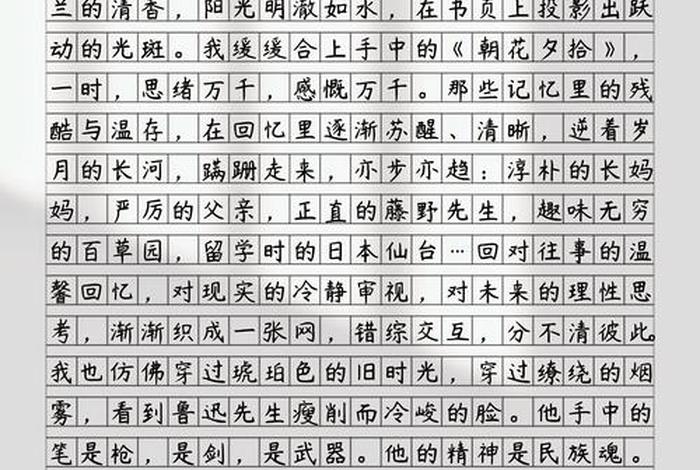 兰的清香，阳光明澈如水，在书页上投影出跃
动的光斑。我缓缓合上手中的《朝花夕拾》，
一时，思绪万千，感慨万千。那些记忆里的残
酷与温存，在回忆里逐渐苏醒、清晰，逆着岁
月的长河，蹒跚走来，亦步亦趋：淳朴的长妈
妈，严厉的父亲，正直的藤野先生，趣味无穷
的百草园，留学时的日本仙台…回对往事的温
馨回忆，对现实的冷静审视，对未来的理性思
考，渐渐织成一张网，错综交互，分不清彼此。
我也仿佛穿过琥珀色的旧时光，穿过缭绕的烟
雾，看到鲁迅先生瘦削而冷峻的脸。他手中的
笔是枪，是剑，是武器。他的精神是民族魂。